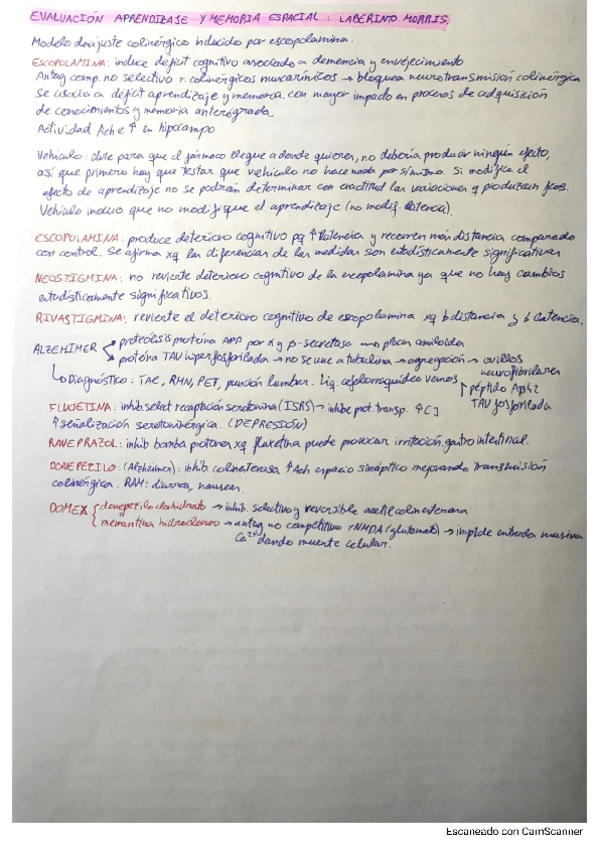 EVALUACIÓN APRENDIZAJE Y MEMORIA ESPACIAL: LABERINTO MORRIS
Modelo desajuste colinérgico inducido por escopolamina.
ESCOPOLAMINA: induce deficit cognitivo asociado a demencia y envejecimiento
Antag comp. no selectivo r. colinérgicos muscarínicos → bloquea neurotransmisión colinérgica
Se asocia a déficit aprendizaje y memoria. con mayor impacto en procesos de adquisición
de conocimientos y memoria anterógrada.
Actividad AchE ↑ en hipocampo
Vehículo: dve para que el fármaco llegue a donde quieres, no debería producir ningún efecto,
así que primero hay que testar que vehículo no hace nada por sí mismo. Si modifica el
efecto de aprendizaje no se podrán determinar con exactitud las variaciones q produzcan fcos.
Vehículo inocuo que no modifique el aprendizaje (no modif. latencia).
ESCOPOLAMINA: produce deterioro cognitivo pq ↑ latencia y recorren más distancia comparado
con control. Se afirma xq las diferencias de las medidas son estadísticamente significativas
NEOSTIGMINA: no revierte deterioro cognitivo de la escopolamina ya que no hay cambios
estadísticamente significativos.
RIVASTIGMINA: revierte el deterioro cognitivo de escopolamina xq ↓ distancia y ↓ latencia.
ALZHEIMER → proteólisis proteína APP por γ y β-secretasa → placas amiloide
→ proteína TAU hiperfosforilada → no se une a tubulina → agregación → ovillos
neurofibrilares
↳ Diagnóstico: TAC, RMN, PET, punción lumbar. Liq. cefalorraquídeo vemos ↑ péptido Aβ42
TAU fosforilada
FLUOXETINA: inhib. select recaptación serotonina (ISRS) → inhibe prot. transp. ↑ [ ]
↑ señalización serotoninérgica. (DEPRESIÓN)
RAVEPRAZOL: inhib bomba protones xq fluoxetina puede provocar irritación gastrointestinal.
DONEPEZILO: (Alzheimer): inhib. colinesterasa ↑ Ach espacio sináptico mejorando transmisión
colinérgica. RAM: diarrea, nauseas.
DOMEX { donepezilo clorhidrato → inhib. selectivo y reversible acetilcolinesterasa
memantina hidrocloruro → antag no competitivo rNMDA (glutamato) → impide entrada masiva
Ca²⁺ dando muerte celular.
Escaneado con CamScanner